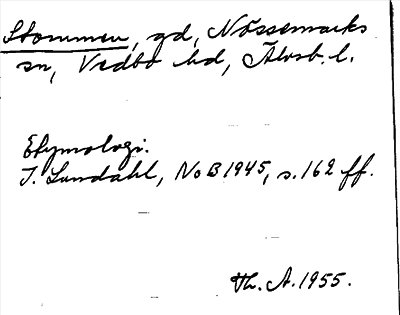 Stommen, gd, Nössemarks
sn, Vedbo hd, Älvsb. l.
Etymologi.
I. Lundahl, NoB 1945, s. 162 ff.
Th. A. 1955.